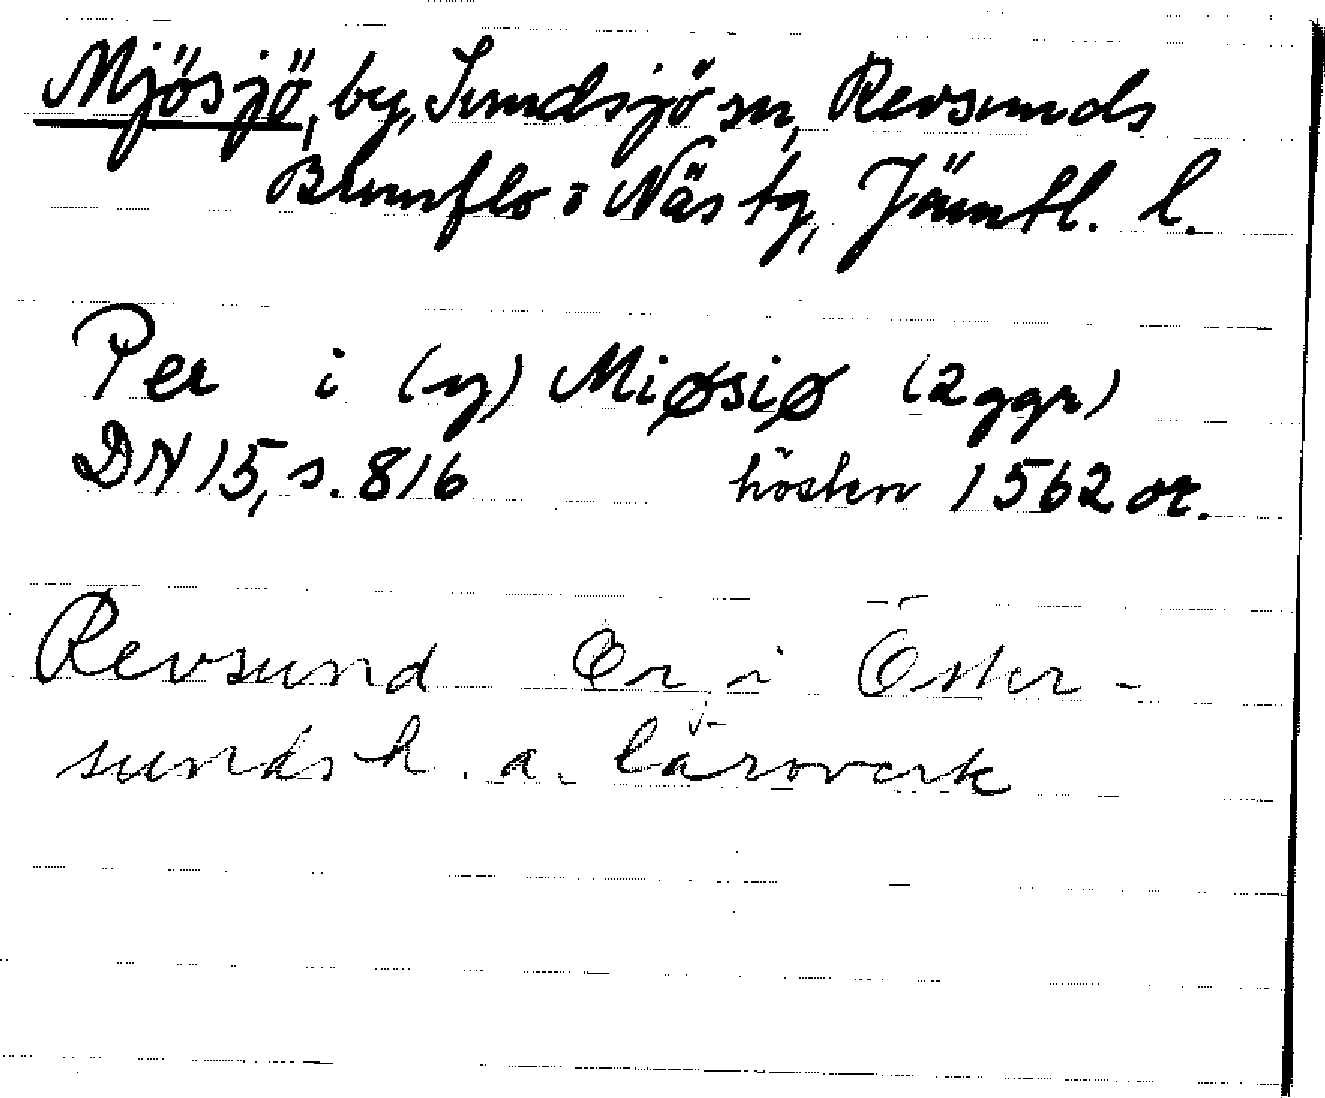 Mjösjö, by, Sundsjö sn, Revsunds
Brunflo o Näs tg, Jämtl. l.
Per i (y) Miøsiø (2 ggr)
DN 15, s. 816 hösten 1562 or.
Revsund Or i Öster-
sunds h. a. läroverk